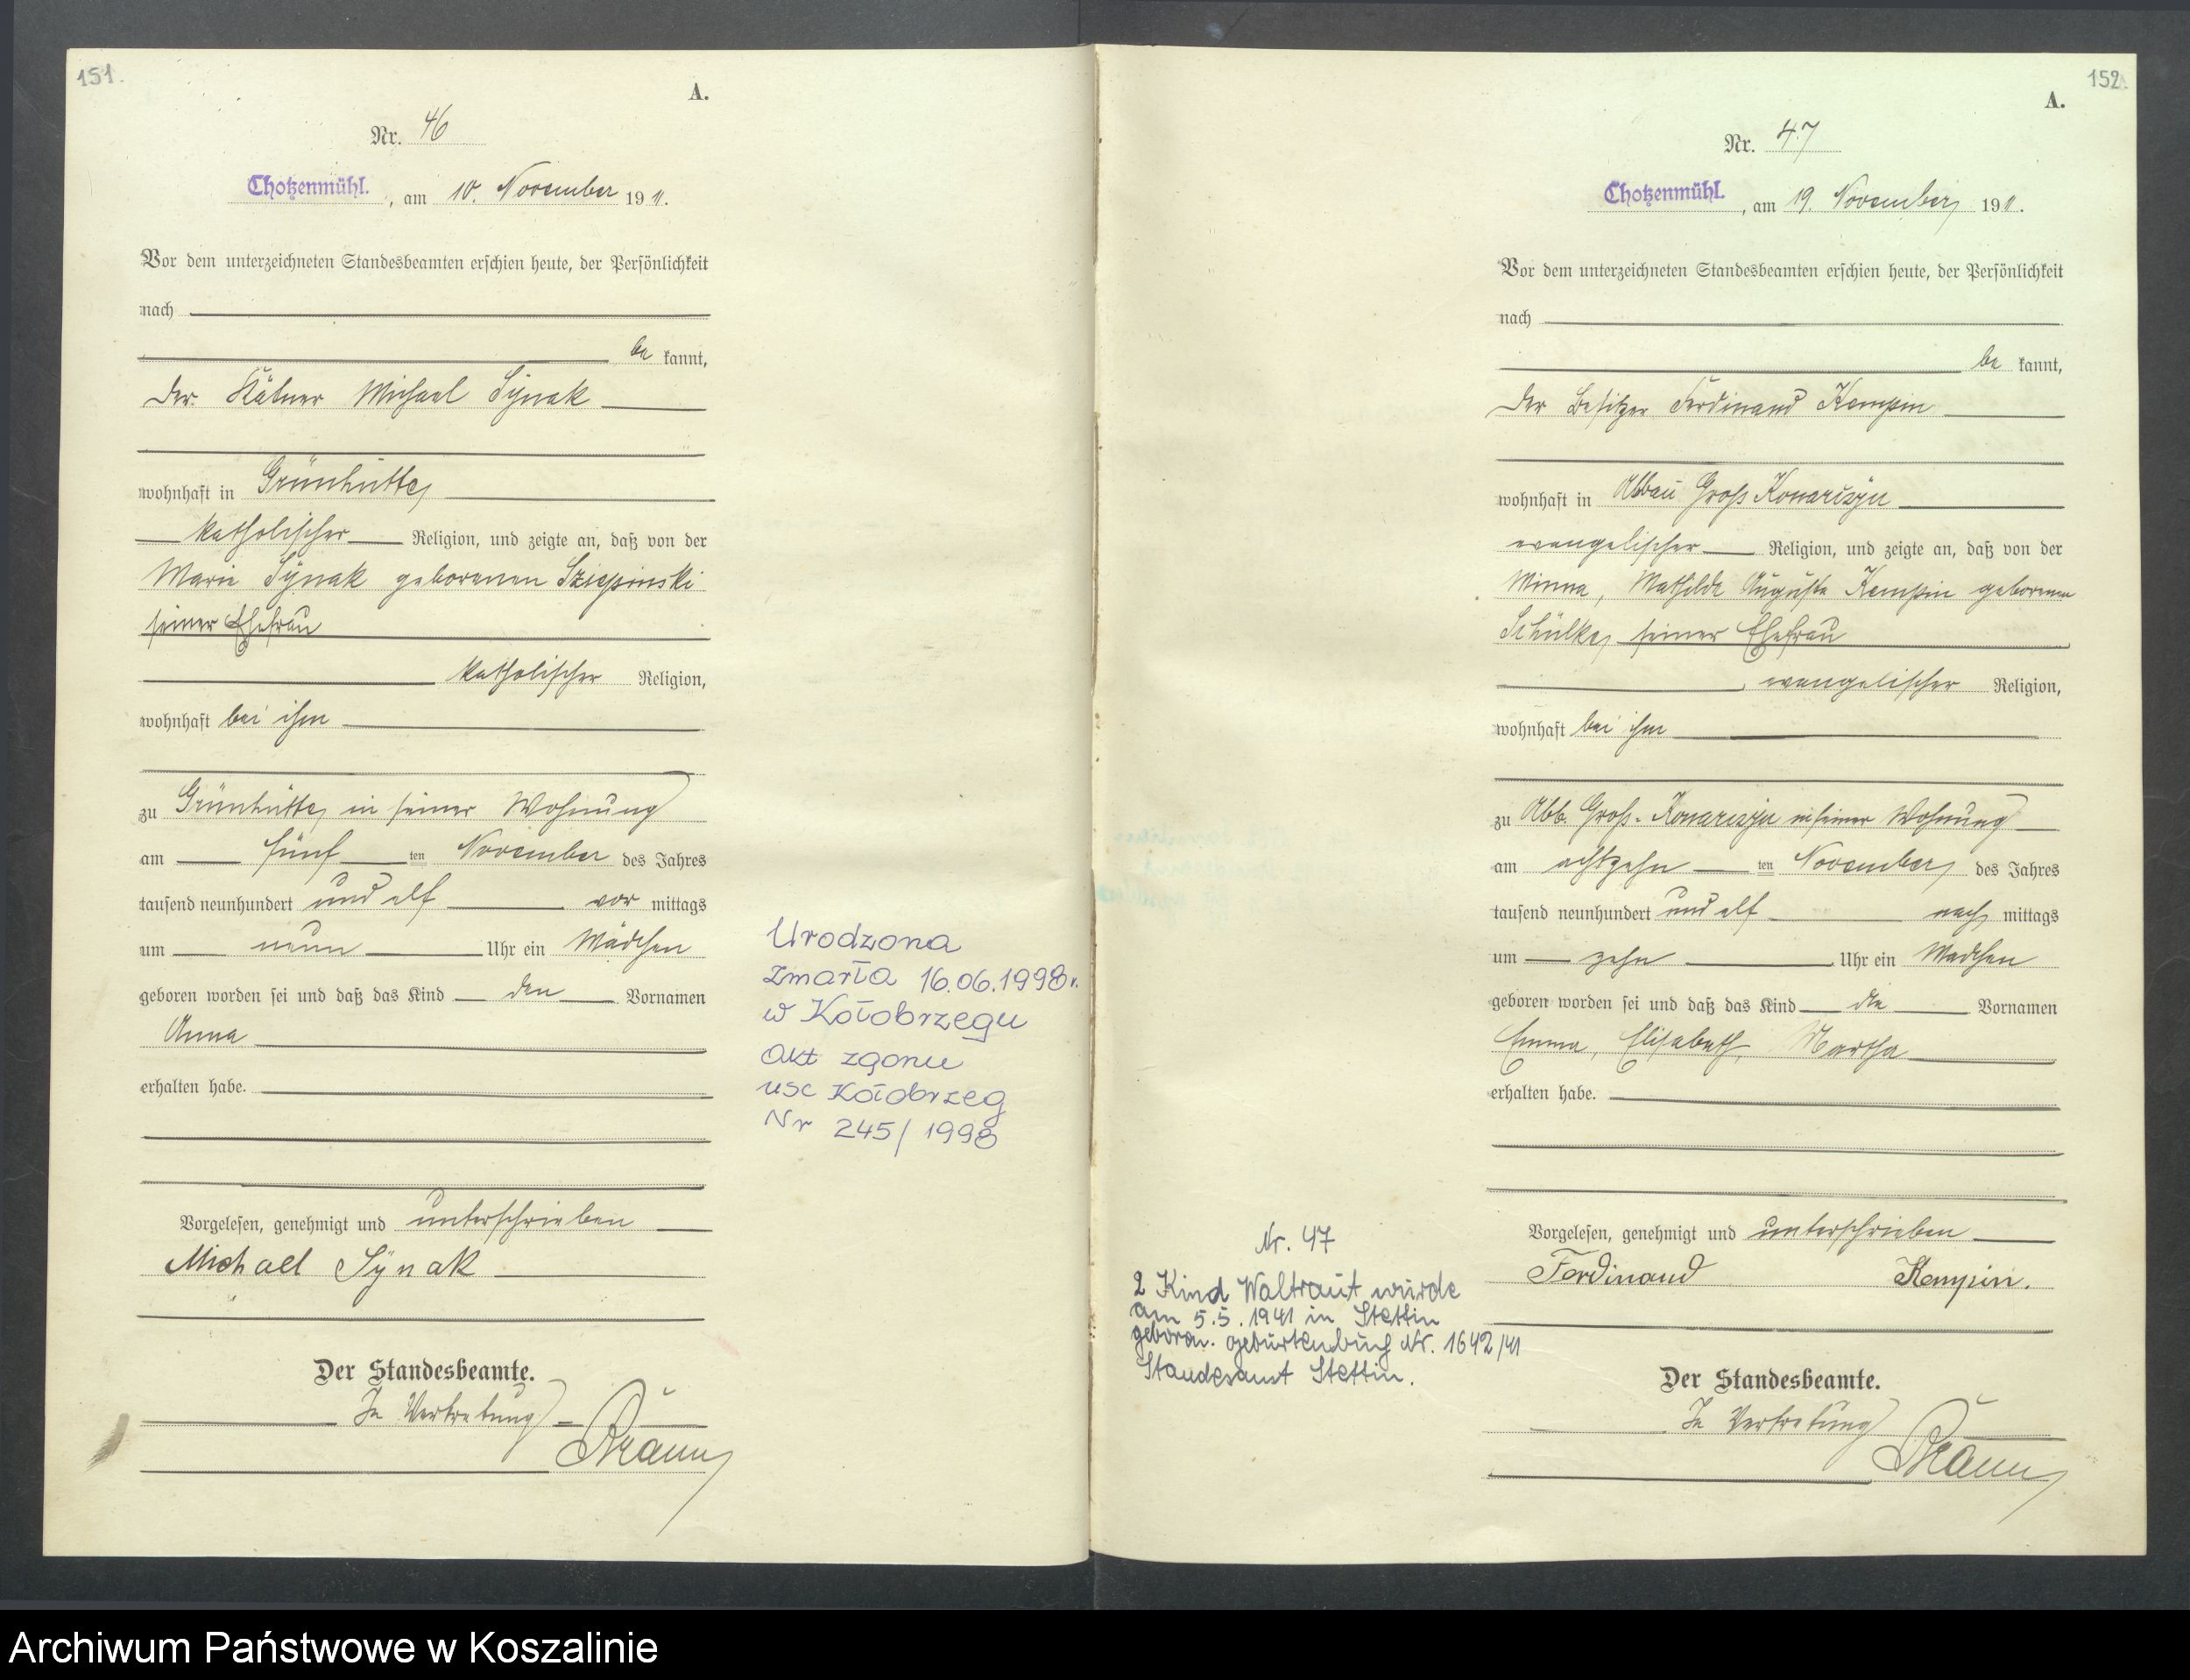 151.
A.
Nr. 46
Chotzenmühl., am 10. November 1911.
Vor dem unterzeichneten Standesbeamten erschien heute, der Persönlichkeit
nach
be kannt,
der Kätner Michael Synak
wohnhaft in Grünhütte,
katholischer Religion, und zeigte an, daß von der
Marie Synak geborenen
seiner Ehefrau
katholischer Religion,
wohnhaft bei ihm
zu Grünhütte, in seiner Wohnung
am fünf ten November des Jahres
tausend neunhundert und elf vor mittags
um neun Uhr ein Mädchen
geboren worden sei und daß das Kind den Vornamen
Anna
erhalten habe.
Vorgelesen, genehmigt und unterschrieben
Michael Synak
Der Standesbeamte.
In Vertretung
Urodzona
zmarła 16.06.1998r.
w Kołobrzegu
akt zgonu
usc Kołobrzeg
Nr 245/1998
152.
A.
Nr. 47
Chotzenmühl., am 19. November 1911.
Vor dem unterzeichneten Standesbeamten erschien heute, der Persönlichkeit
nach
be kannt,
der Besitzer Ferdinand Kempin
wohnhaft in Abbau Groß Konarczyn
evangelischer Religion, und zeigte an, daß von der
Minna, Mathilde Auguste Kempin geborenen
Schülke, seiner Ehefrau
evangelischer Religion,
wohnhaft bei ihm
zu Abb. Groß-Konarczyn in seiner Wohnung
am achtzehn ten November des Jahres
tausend neunhundert und elf nach mittags
um zehn Uhr ein Mädchen
geboren worden sei und daß das Kind die Vornamen
Emma, Elisabeth, Martha
erhalten habe.
Vorgelesen, genehmigt und unterschrieben
Ferdinand Kempin.
Der Standesbeamte.
In Vertretung
Nr. 47
2 Kind Waltraut wurde
am 5.5.1941 in Stettin
geboren. Geburtenbuch Nr. 1642/41
Standesamt Stettin.
Archiwum Państwowe w Koszalinie